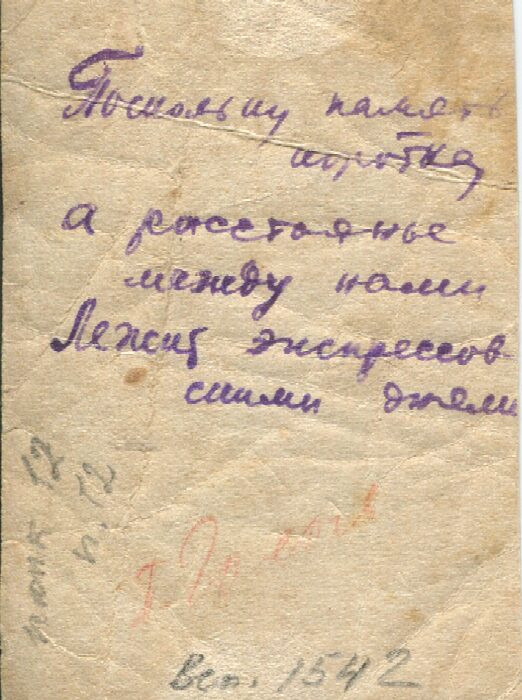 Поскольку память
коротка,
а расстоянье
между нами
Лежит экспрессов-
скими днями
папк 12
п. 12
Всп. 1542